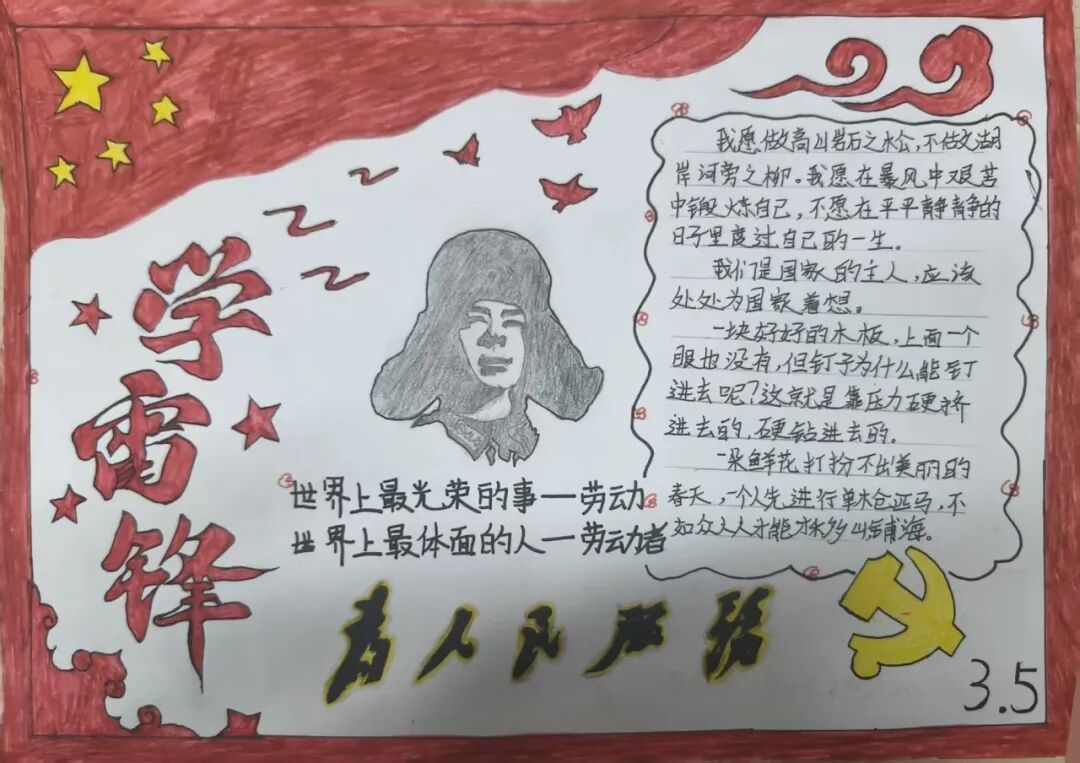 学雷锋
我愿做高山岩石之松,不做湖
岸河旁之柳。我愿在暴风中艰苦
中锻炼自己,不愿在平平静静的
日子里度过自己的一生。
我们是国家的主人,应该
处处为国家着想。
一块好好的木板,上面一个
眼也没有,但钉子为什么能钉
进去呢?这就是靠压力硬挤
进去的,硬钻进去的。
一朵鲜花打扮不出美丽的
春天,一个人先进行单枪匹马,不
如众人人才能移山铺海。
世界上最光荣的事—劳动
世界上最体面的人—劳动者
为人民服务
3.5